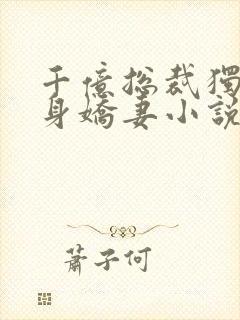 千億總裁獨
身嬌妻小說
蕭子何